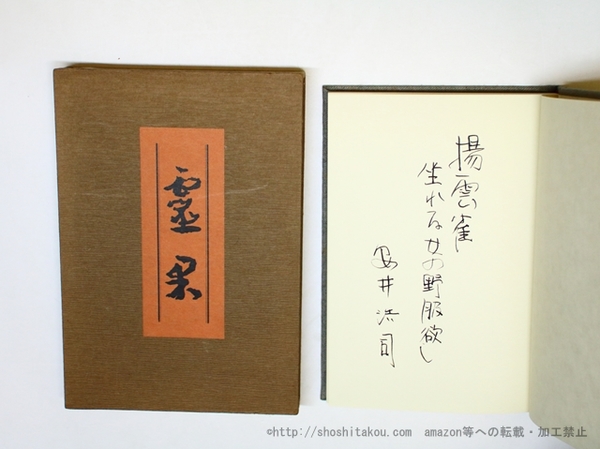 霊果
揚雲雀
坐れる女の野服欲し
安井浩司
©http://shoshitakou.com amazon等への転載・加工禁止